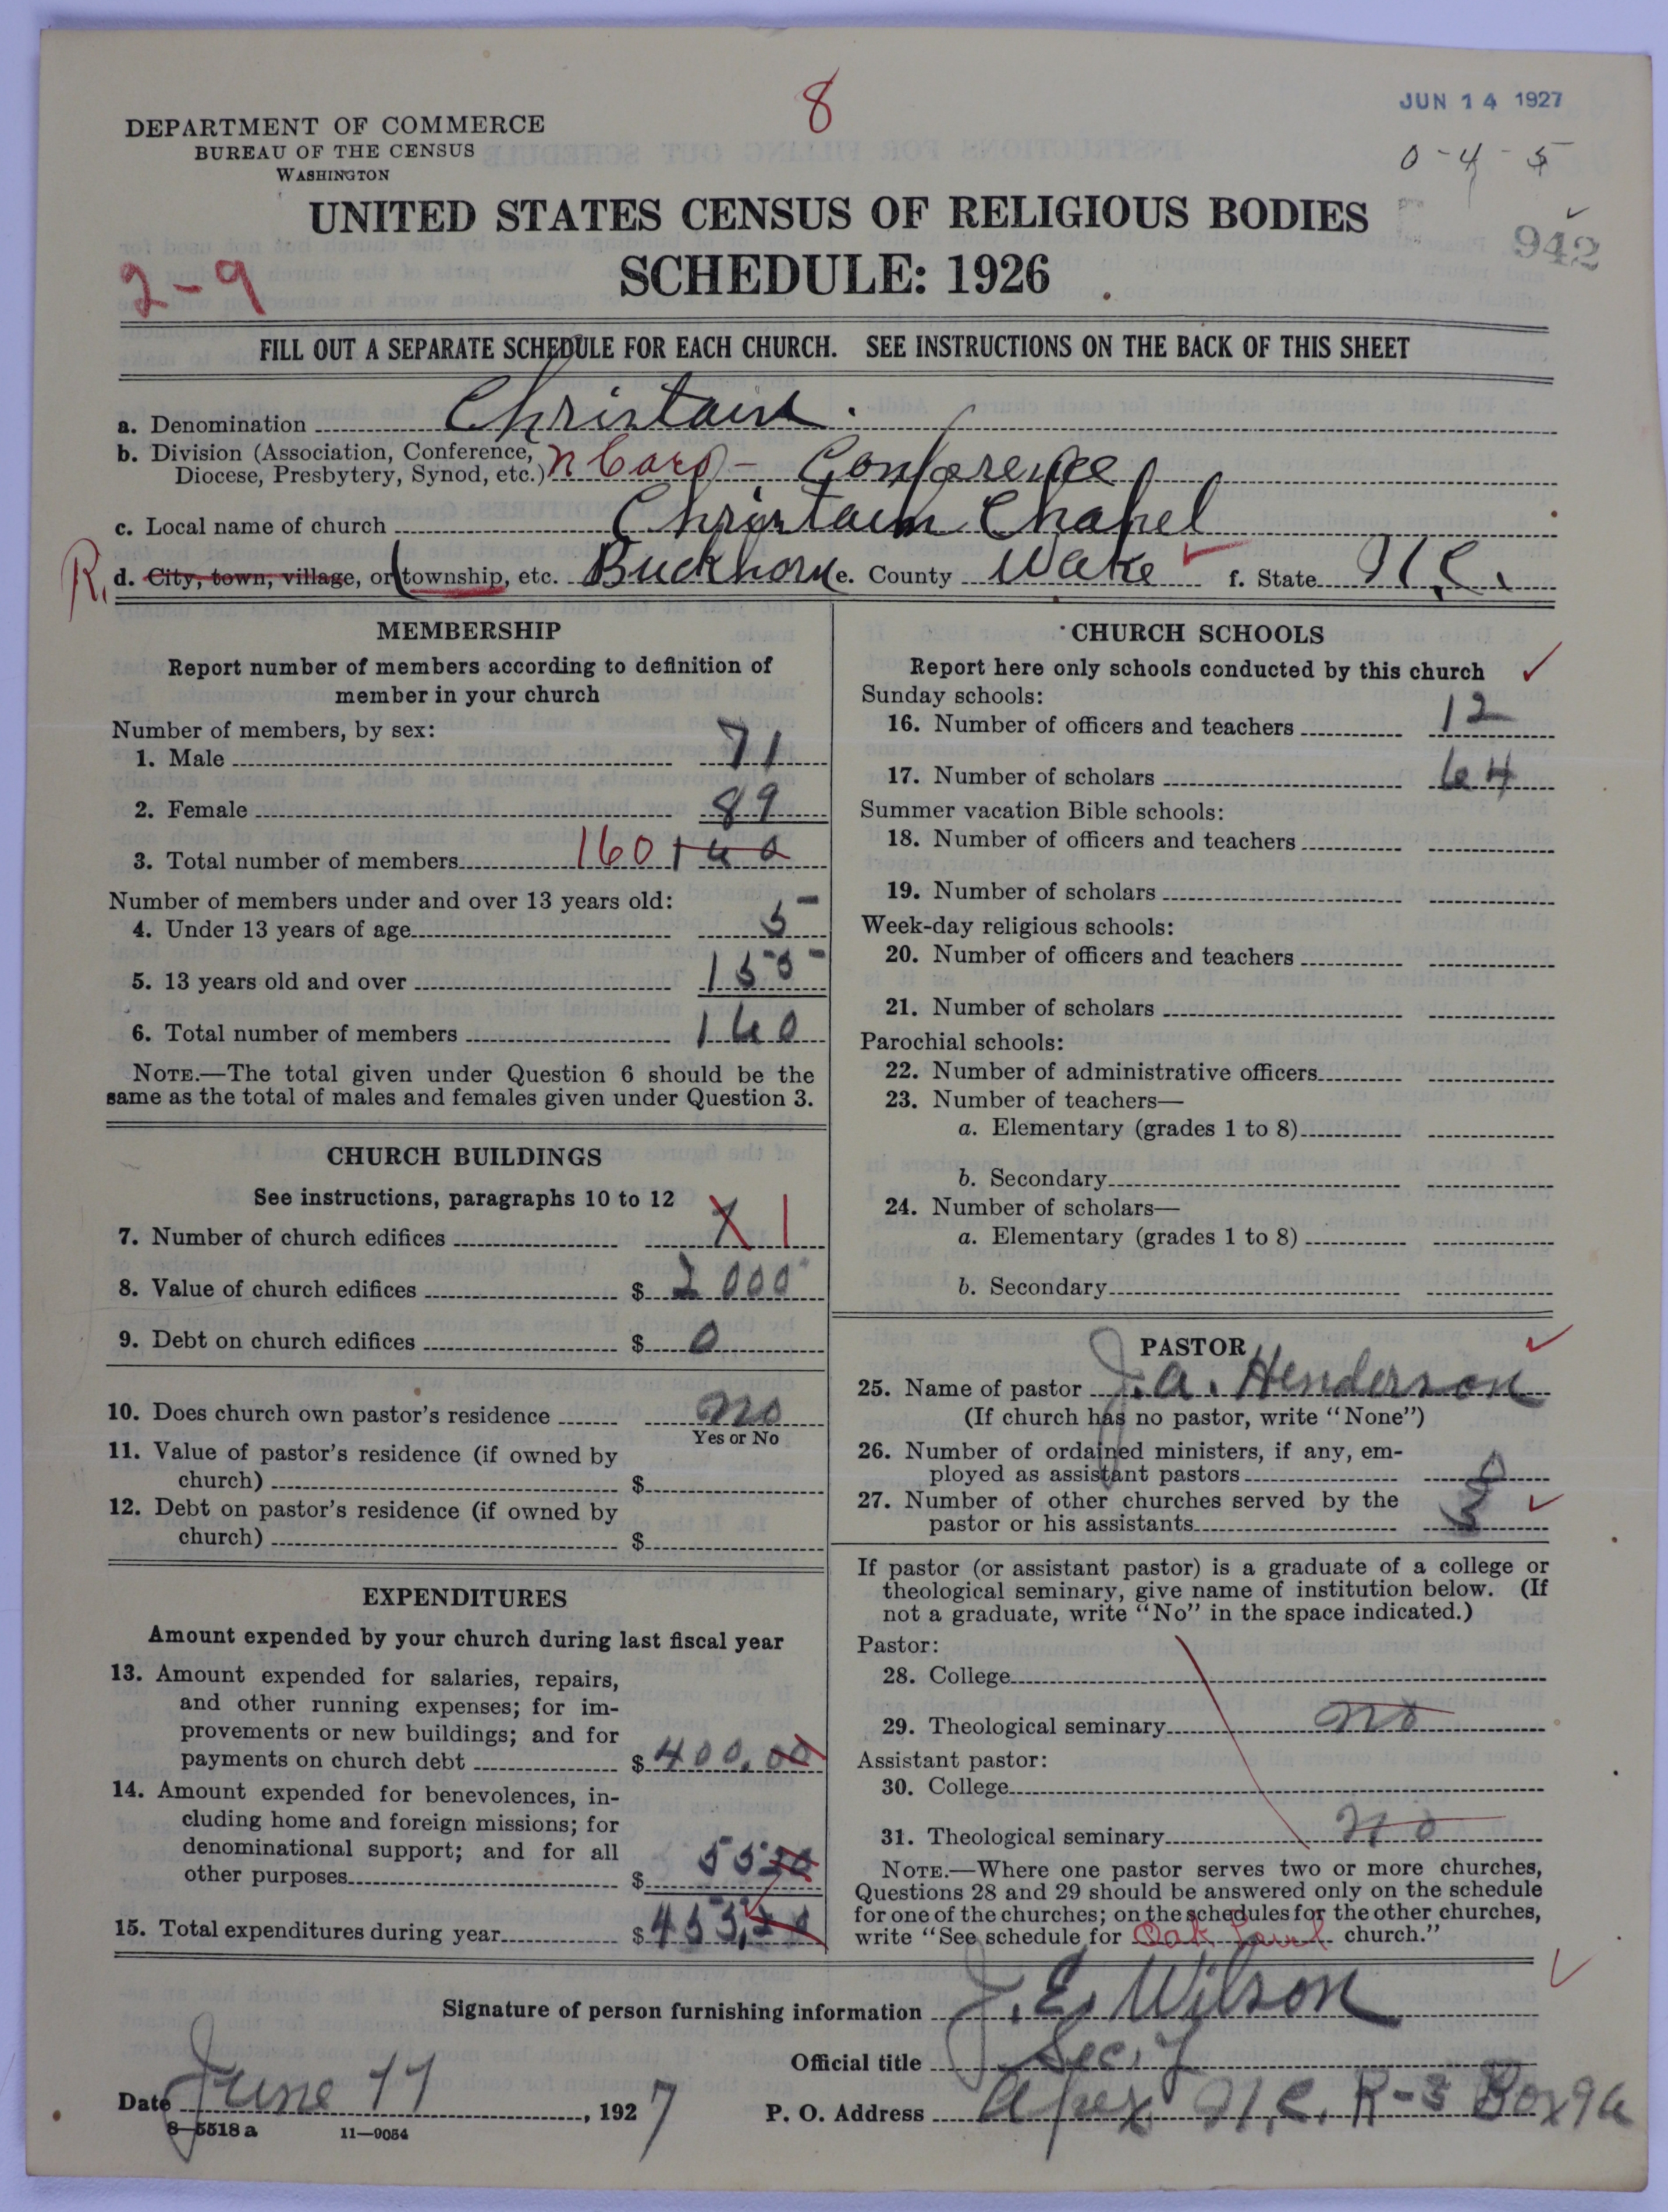 8
JUN 14 1927
DEPARTMENT OF COMMERCE
BUREAU OF THE CENSUS
WASHINGTON
0-4-5
UNITED STATES CENSUS OF RELIGIOUS BODIES
942
2-9
SCHEDULE: 1926
FILL OUT A SEPARATE SCHEDULE FOR EACH CHURCH. SEE INSTRUCTIONS ON THE BACK OF THIS SHEET
a. Denomination Christain.
b. Division (Association, Conference,
Diocese, Presbytery, Synod, etc.) N Caro - Conference
c. Local name of church Christain Chapel
R. d. City, town, village, or township, etc. Buckhorn e. County Wake f. State N.C.
MEMBERSHIP
Report number of members according to definition of
member in your church
Number of members, by sex:
1. Male 71
2. Female 89
3. Total number of members 160 160
Number of members under and over 13 years old:
4. Under 13 years of age 5
5. 13 years old and over 155
6. Total number of members 160
NOTE.—The total given under Question 6 should be the
same as the total of males and females given under Question 3.
CHURCH BUILDINGS
See instructions, paragraphs 10 to 12
7. Number of church edifices 1
8. Value of church edifices $ 2000
9. Debt on church edifices $ 0
10. Does church own pastor's residence no
Yes or No
11. Value of pastor's residence (if owned by
church) $
12. Debt on pastor's residence (if owned by
church) $
EXPENDITURES
Amount expended by your church during last fiscal year
13. Amount expended for salaries, repairs,
and other running expenses; for im-
provements or new buildings; and for
payments on church debt $ 400.00
14. Amount expended for benevolences, in-
cluding home and foreign missions; for
denominational support; and for all
other purposes $ 55
15. Total expenditures during year $ 455
CHURCH SCHOOLS
Report here only schools conducted by this church
Sunday schools:
16. Number of officers and teachers 12
17. Number of scholars 64
Summer vacation Bible schools:
18. Number of officers and teachers
19. Number of scholars
Week-day religious schools:
20. Number of officers and teachers
21. Number of scholars
Parochial schools:
22. Number of administrative officers
23. Number of teachers—
a. Elementary (grades 1 to 8)
b. Secondary
24. Number of scholars—
a. Elementary (grades 1 to 8)
b. Secondary
PASTOR
25. Name of pastor J. A. Henderson
(If church has no pastor, write "None")
26. Number of ordained ministers, if any, em-
ployed as assistant pastors 0
27. Number of other churches served by the
pastor or his assistants 3
If pastor (or assistant pastor) is a graduate of a college or
theological seminary, give name of institution below. (If
not a graduate, write "No" in the space indicated.)
Pastor:
28. College
29. Theological seminary no
Assistant pastor:
30. College
31. Theological seminary no
NOTE.—Where one pastor serves two or more churches,
Questions 28 and 29 should be answered only on the schedule
for one of the churches; on the schedules for the other churches,
write "See schedule for Oak church."
Signature of person furnishing information J. E. Wilson
Official title Sec'y
Date June 11, 1927
P. O. Address Apex N.C. R-3 Box 96
8-5518 a 11-9054